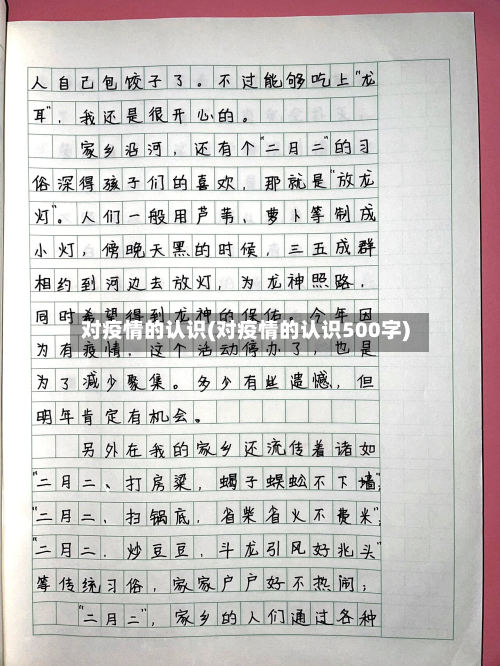 人自己包饺子了。不过能够吃上"龙
耳"，我还是很开心的。
家乡沿河，还有个"二月二"的习
俗深得孩子们的喜欢，那就是"放龙
灯"。人们一般用芦苇、萝卜等制成
小灯，傍晚天黑的时候，三五成群
相约到河边去放灯，为龙神照路，
同时希望得到龙神的保佑。今年因
对疫情的认识(对疫情的认识500字)
为有疫情，这个活动停办了，也是
为了减少聚集。多少有些遗憾，但
明年肯定有机会。
另外在我的家乡还流传着诸如
"二月二、打房梁，蝎子蜈蚣不下墙"；
"二月二、扫锅底，省柴省火不费米"；
"二月二．炒豆豆，斗龙引风好兆头"
等传统习俗，家家户户好不热闹；
"二月二"，家乡的人们通过各种